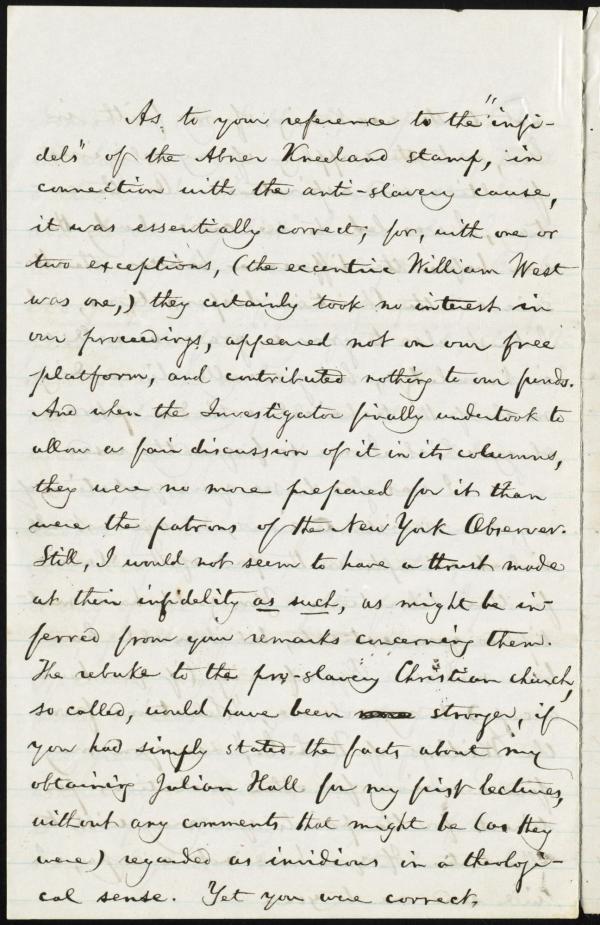 As to your reference to the "infi-
dels" of the Abner Kneeland stamp, in
connection with the anti-slavery cause,
it was essentially correct; for, with one or
two exceptions, (the eccentric William West
was one,) they certainly took no interest in
our proceedings, appeared not on our free
platform, and contributed nothing to our funds.
And when the Investigator finally undertook to
allow a fair discussion of it in its columns,
they were no more prepared for it than
were the patrons of the New York Observer.
Still, I would not seem to have a thrust made
at their infidelity as such, as might be in-
ferred from your remarks concerning them.
The rebuke to the pro-slavery "Christian" church,
so called, would have been stronger, if
you had simply stated the facts about my
obtaining Julian Hall for my first lectures,
without any comments that might be (as they
were) regarded as invidious in a theologi-
cal sense. Yet you were correct.